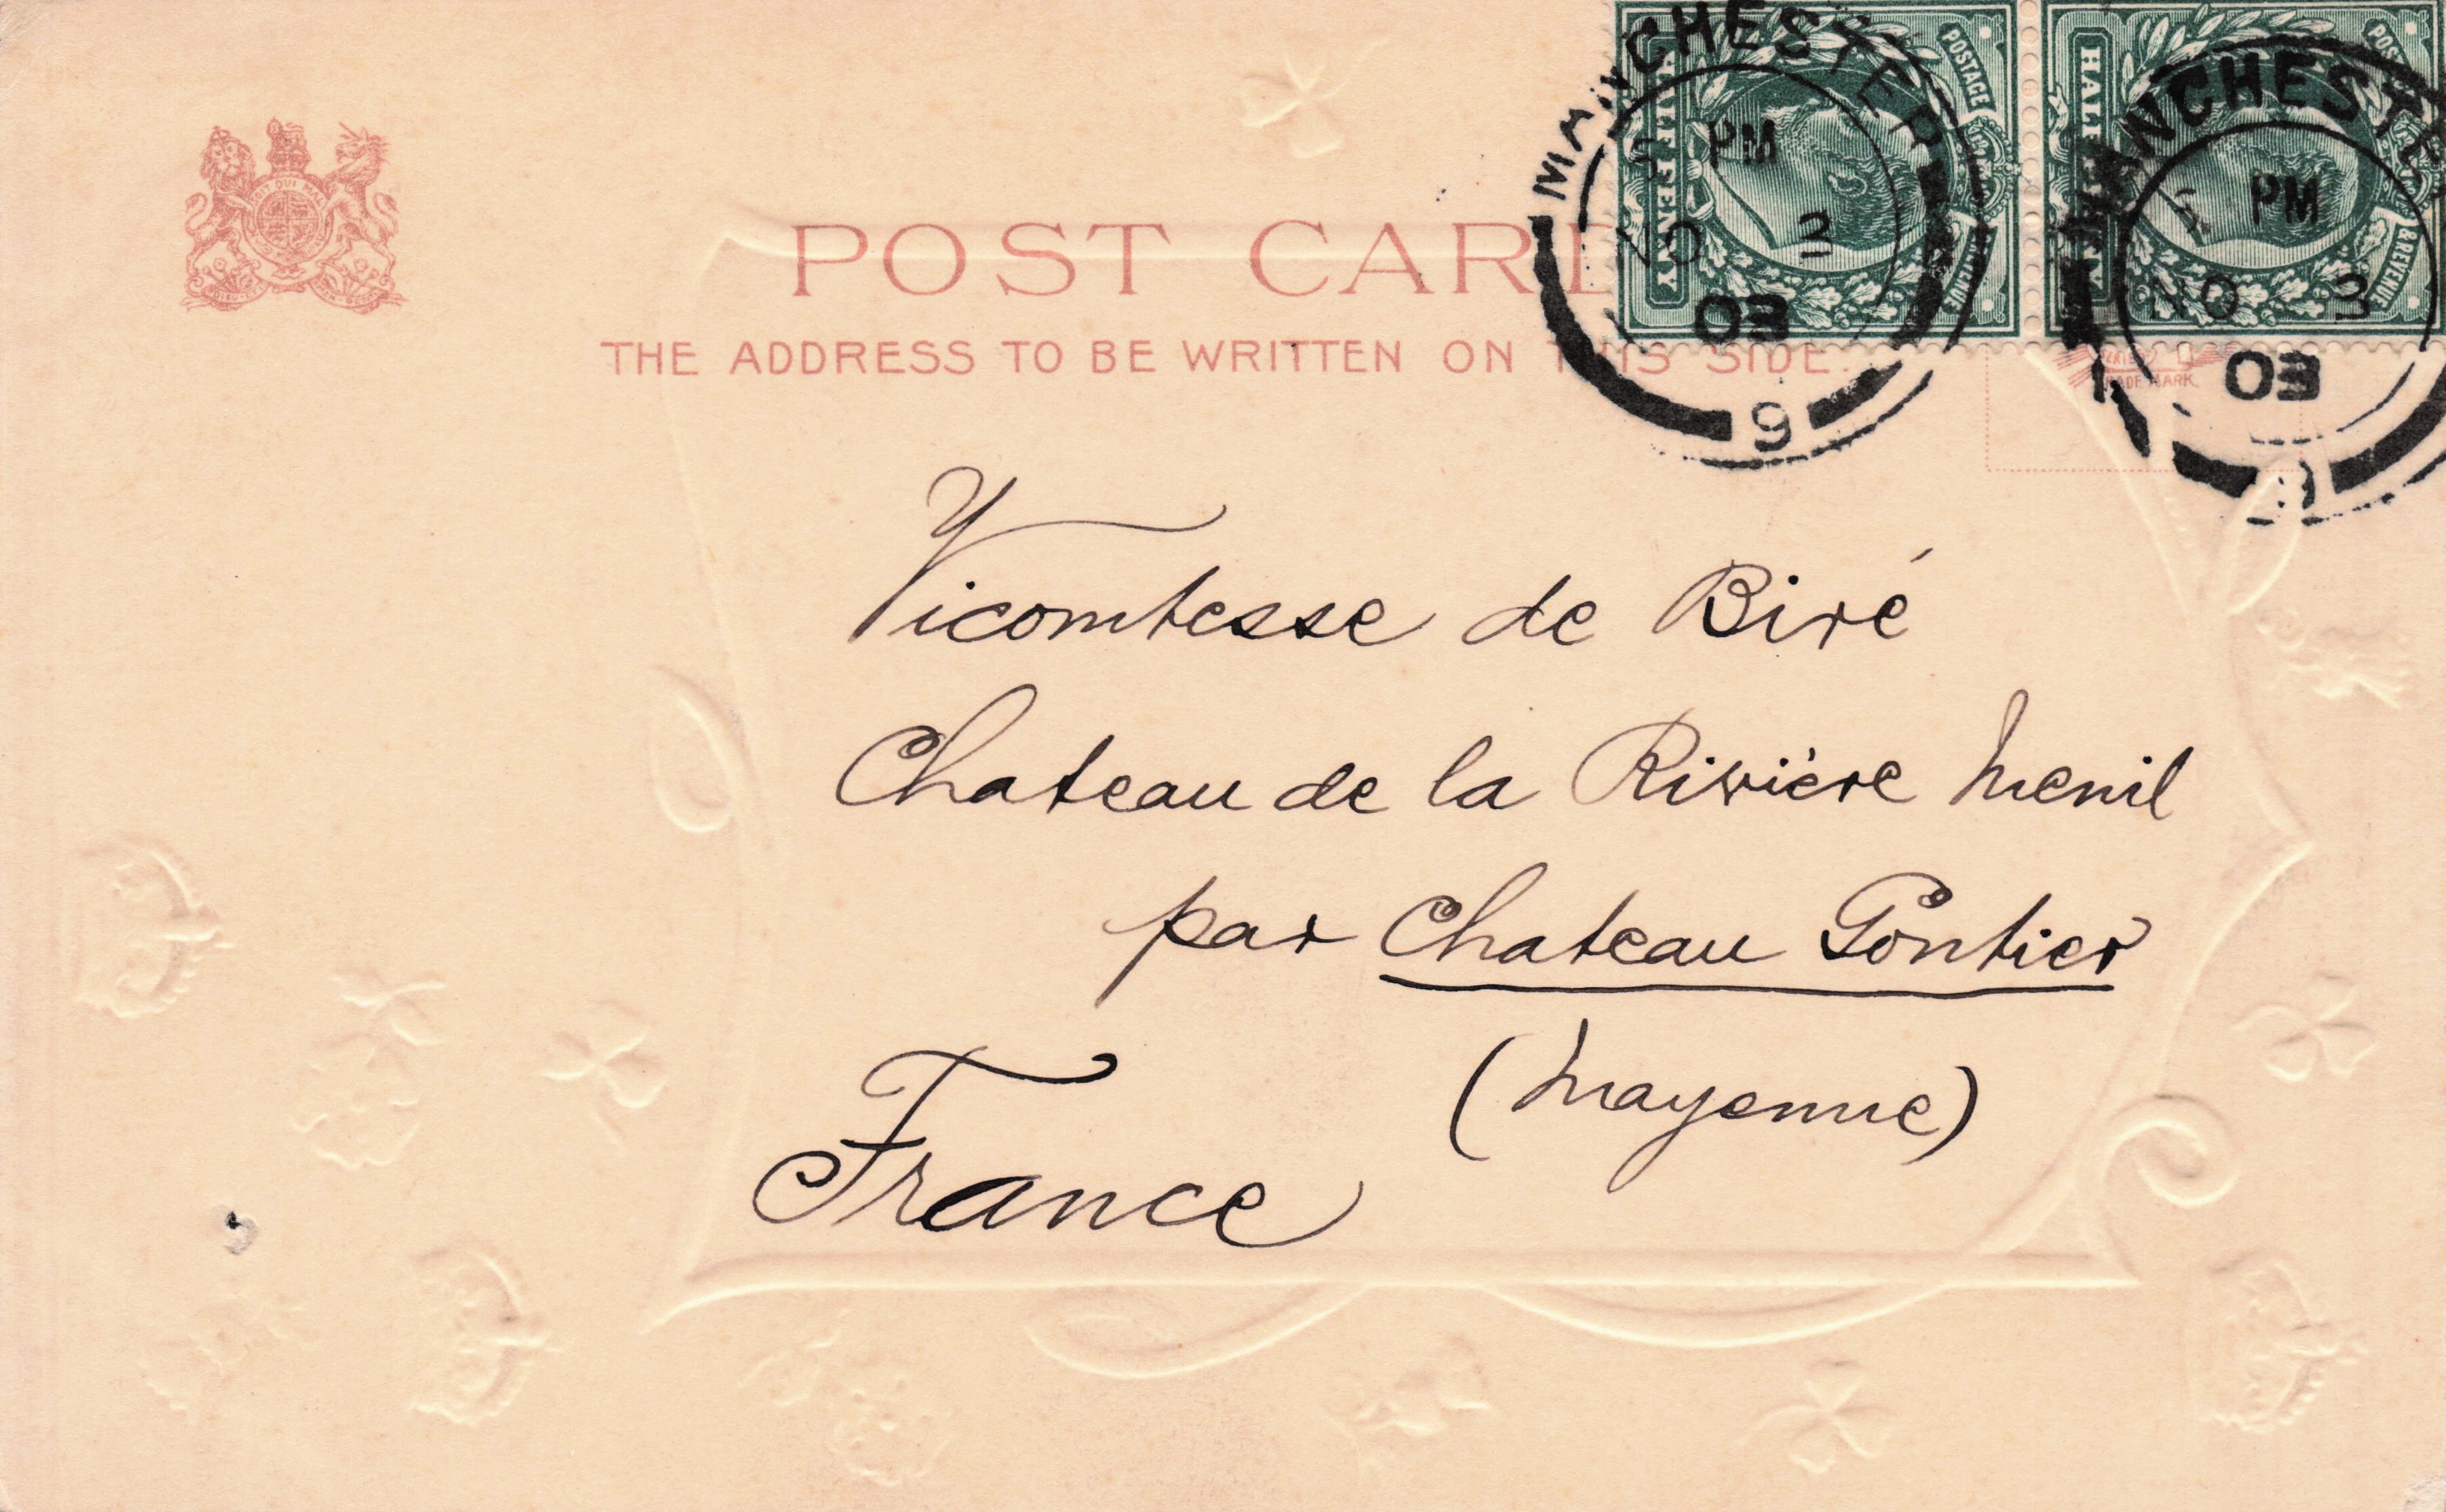 POST CARD
THE ADDRESS TO BE WRITTEN ON THIS SIDE.
MANCHESTER
5 PM
NO 3
03
9
HALFPENNY
POSTAGE
& REVENUE
MANCHESTER
5 PM
NO 3
03
HALFPENNY
POSTAGE
& REVENUE
TRADE MARK
Vicomtesse de Biré
Chateau de la Rivière Menil
par Chateau Gontier
(Mayenne)
France